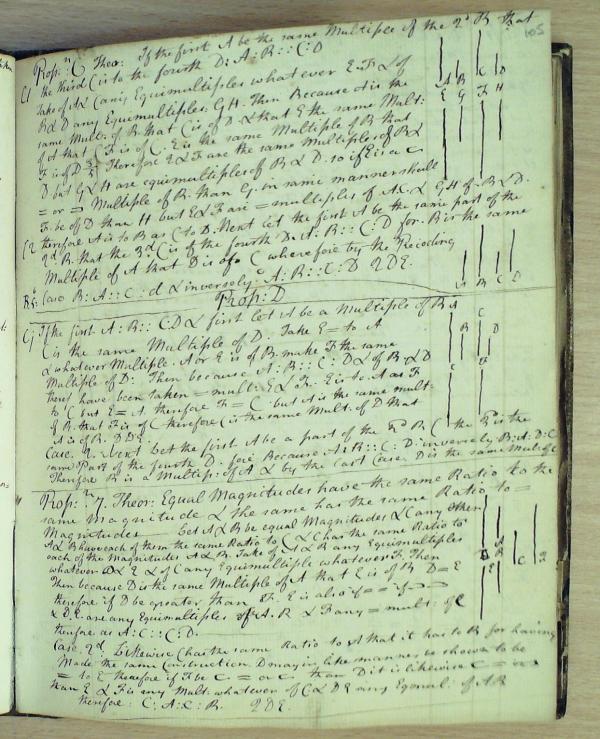 105
Prop:n C Theo: If the first A be the same Multiple of the 2d B that
C1 the third C is to the fourth D: A: B:: C: D
Take of A & C any Equimultiples whatever E.F & of
B & D any Equimultiples G H. Then Because A is the
same Mult: of B. that C is of D & that E the same Mult:
of A that F is of C. E is the same Multiple of B that
F is of D. Therefore E & F are the same Multiples of B &
D but G & H are equimultiples of B & D. so if E is a
= or Multiple of B. than G. in same manner shall
F. be of D than H but E & F are = multiples of A C. & G H of B & D.
therefore A is to B as C to D. Next let the first A be the same part of the
C2 2d B. that the 3d C is of the fourth D: A: B:: C: D for B is the same
Multiple of A that D is of C wherefore by the
Case B: A:: C: d & inversely A: B:: C: D QDE.
Prop: D
C1 If the first A: B:: C D & first let A be a Multiple of B
C is the same Multiple of D. Take E = to A
& whatever Multiple. A or E is of B. make F the same
Multiple of D: Then because A: B:: C: D & of B & D
have been taken = mult: E & F. E is to A as F
to C but E = A. therefore F = C. but A is the same mult:
of B. that F is of therefore C is the same Mult. of D that
A is of B. QDE.
Case. 2. Next let the first A be a part of the 2d B C the 3d is the
same Part of the fourth D. for Because A: B:: C: D. inversely B: A: D: C
Therefore B is a Multip: of A & by the last Case. D is the same Multiple of C
Prop:n 7. Theor: Equal Magnitudes have the same Ratio to the
same magnitude & the same has the same Ratio to =
Magnitudes Let A & B be equal Magnitudes & C any other
A & B have each of them the same Ratio to C & C has the same Ratio to
each of the Magnitudes A & B. Take of A & B any Equimultiples
whatever D & E & of C any Equimultiple whatever F. Then
Then because D is the same Multiple of A that E is of B D = E
therefore if D be greater than F. E is also if = =
& D. E are any Equimultiples of A. B & F any = mult: of C
therefore as A: C:: C: D.
Case. 2d. Likewise C has the same Ratio to A that it has to B for having
Made the same Construction. D may in like manner be shown to be
= to E therefore if F be = or than D it is likewise = or
than E & F is any Mult: whatever of C & D E any Equmul: of A B
therefore: C: A: C: B. QDE.